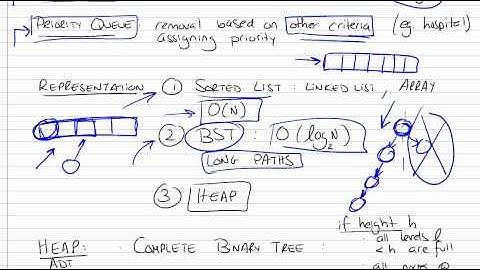 PRIORITY QUEUE removal based on other criteria (eg hospital)
assigning priority
REPRESENTATION ① SORTED LIST : LINKED LIST, ARRAY
O(N)
② BST : O(log₂N)
LONG PATHS
③ HEAP
if height h
HEAP: · COMPLETE BINARY TREE : · all levels
ADT < h are full
· all nodes @